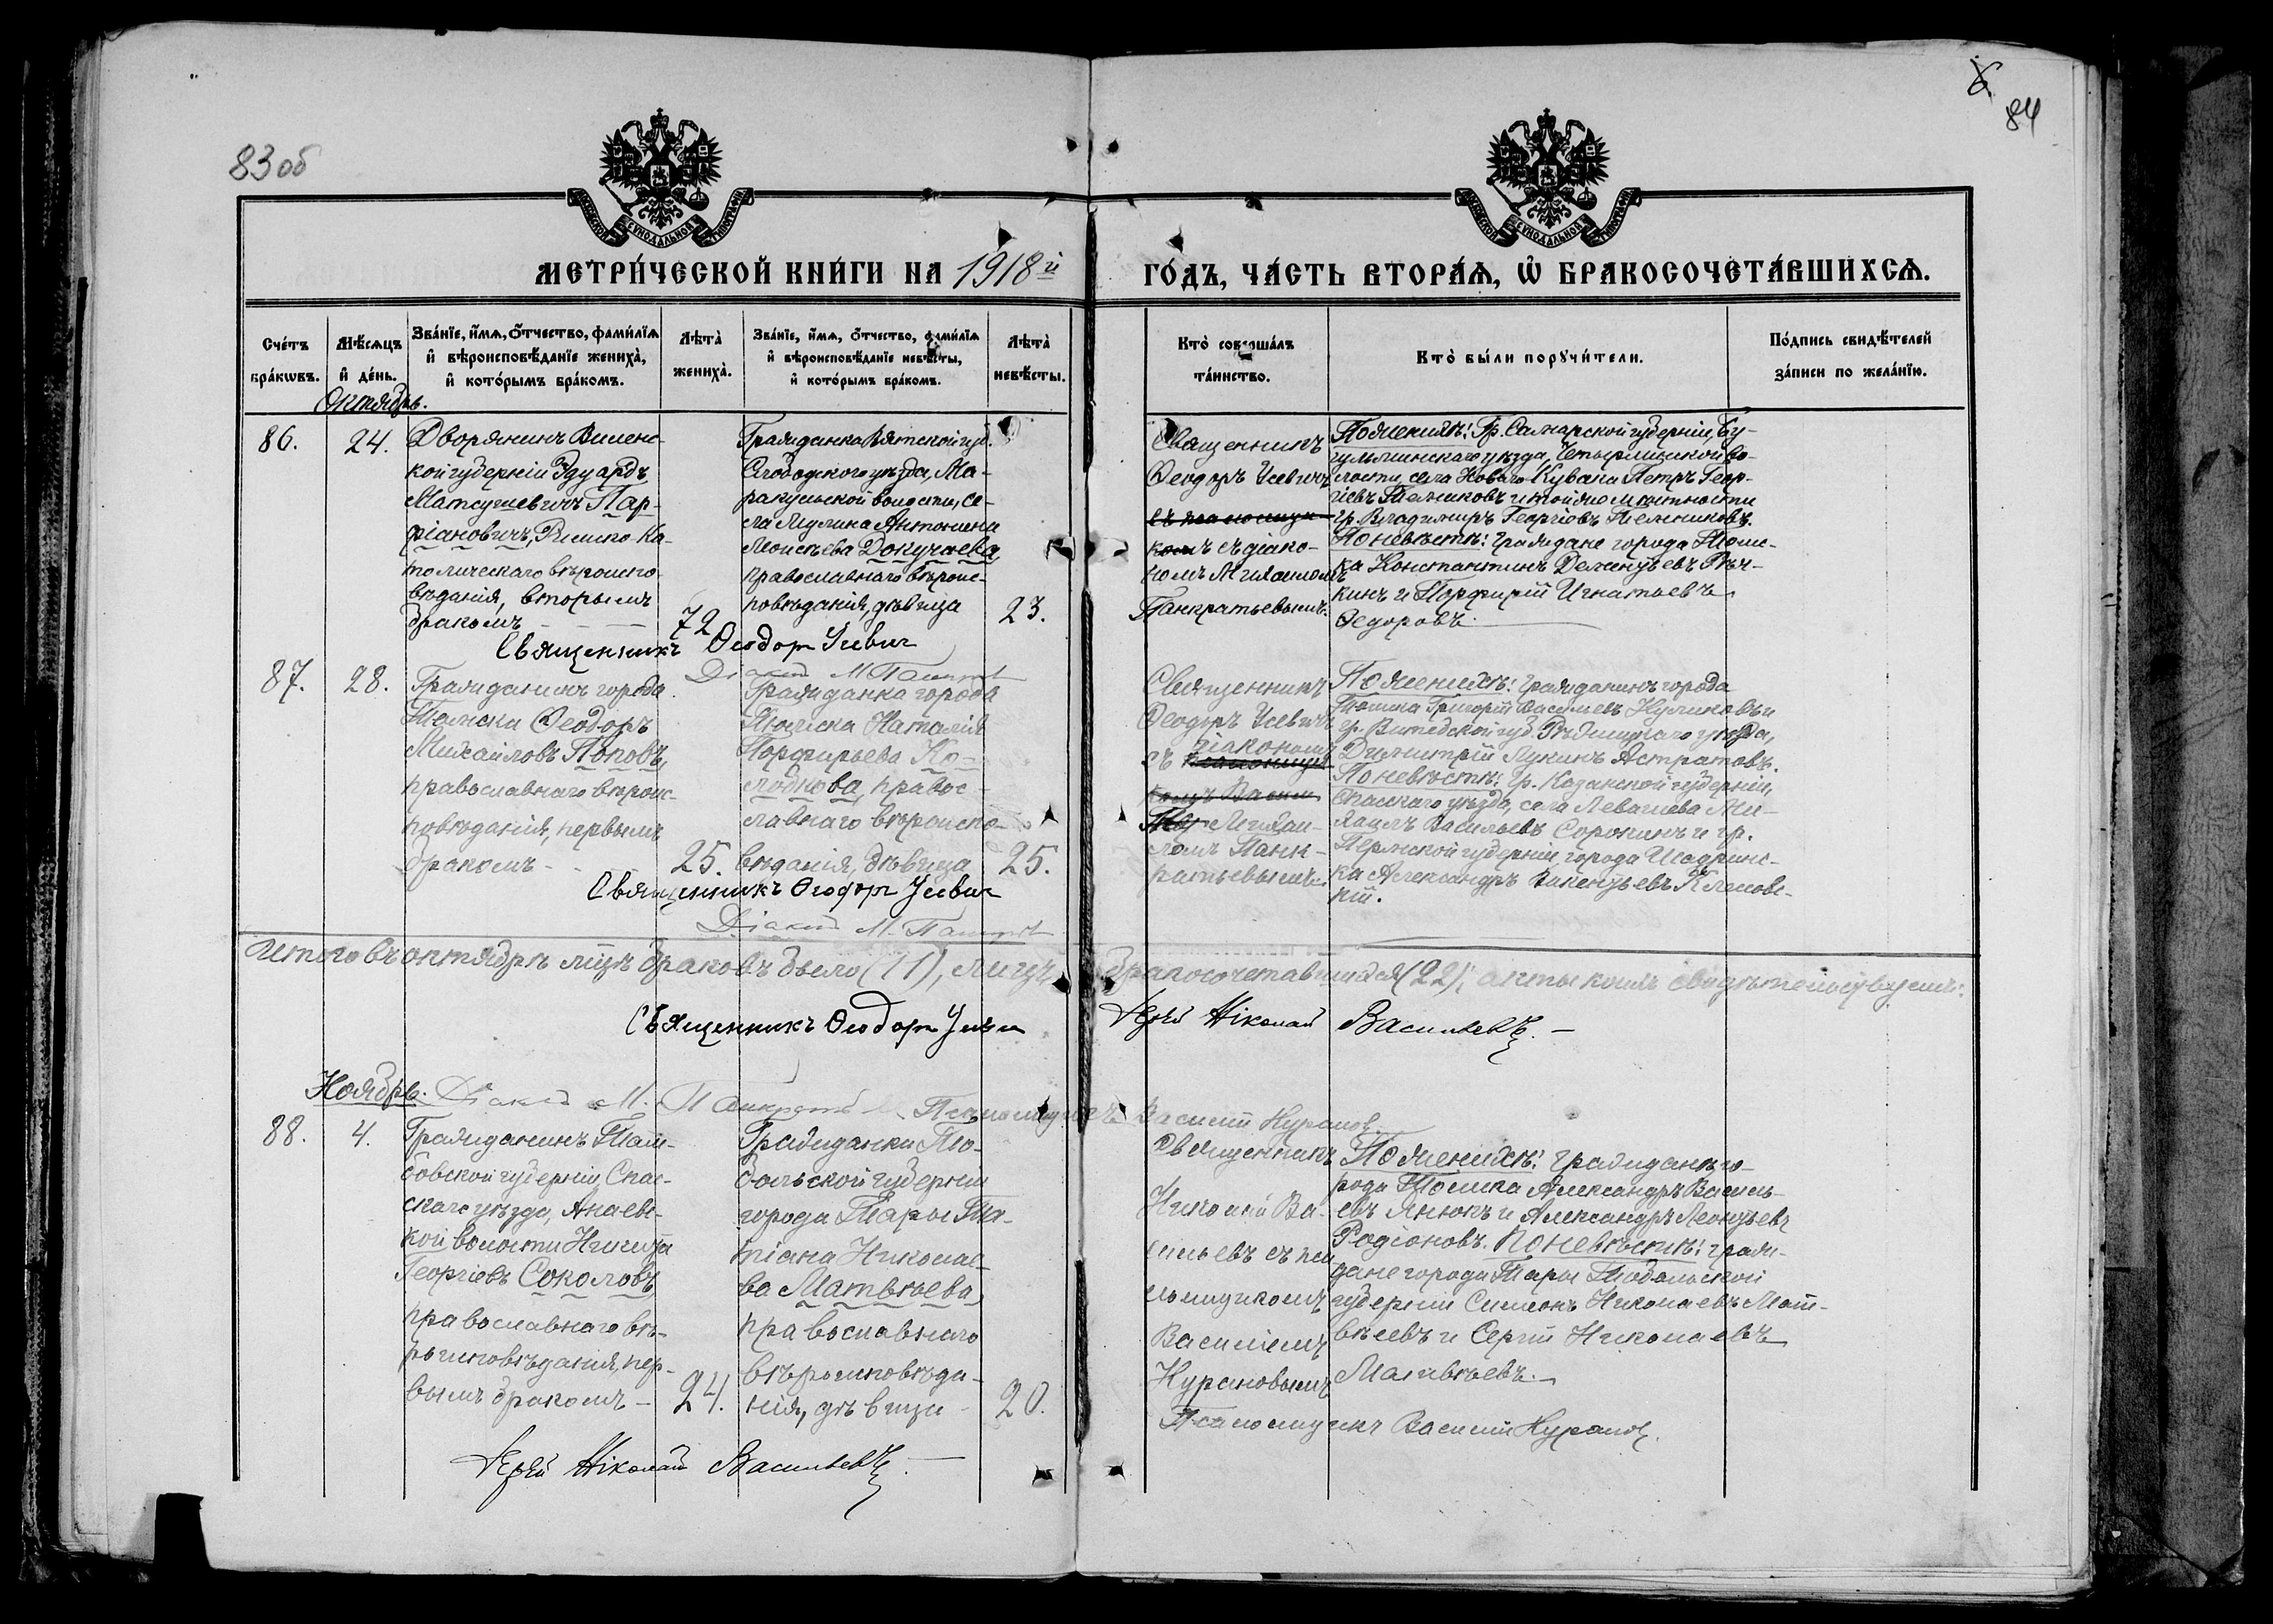 83 об
6
84
МОСКОВСКОЙ СУНОДАЛЬНОЙ ТИПОГРАФІИ
МОСКОВСКОЙ СУНОДАЛЬНОЙ ТИПОГРАФІИ
МЕТРИ́ЧЕСКОЙ КНИ́ГИ НА 1918й ГО́ДЪ, ЧА́СТЬ ВТОРА́Ѧ, Ѽ БРАКОСОЧЕТА́ВШИХСѦ.
Сче́тъ бра́кѡвъ.
Мѣ́сѧцъ и҆ де́нь.
Зва́нїе, и҆́мѧ, ѻ҆́тчество, фами́лїѧ и҆ вѣроисповѣ́данїе жениха̀, и҆ кото́рымъ бра́комъ.
Лѣта̀ жениха̀.
Зва́нїе, и҆́мѧ, ѻ҆́тчество, фами́лїѧ и҆ вѣроисповѣ́данїе невѣ́сты, и҆ кото́рымъ бра́комъ.
Лѣта̀ невѣ́сты.
Кто̀ соверша́лъ та́инство.
Кто̀ бы́ли порꙋчи́тели.
По́дпись свидѣ́телей за́писи по жела́нїю.
Октябрь.
86.
24.
Дворянинъ Виленс-
кой губерніи Эдуардъ
Матсушевичъ Пар-
фіановичъ, Римско-Ка-
толическаго вѣроиспо-
вѣданія, вторымъ
бракомъ
72
Гражданка Вятской губ.
Слободского уѣзда, Ма-
ракульской волости, се-
ла Мулина Антонина
Моисѣева Докучаева,
православнаго вѣроис-
повѣданія, дѣвица
23.
Священникъ
Ѳеодоръ Усевичъ
съ псаломщи-
комъ съ діако-
номъ Михаиломъ
Панкратьевымъ.
По женихѣ: Гр. Самарской губерніи, Бу-
гульминскаго уѣзда, волости, села Новаго Кувака Петръ Геор-
гіевъ Тельниковъ и той же мѣстности
гр. Владимиръ Георгіевъ Тельниковъ.
По невѣстѣ: Граждане города Томс-
ка Константинъ Дементьевъ Рѣч-
кинъ и Порфирій Игнатьевъ
Ѳедоровъ.
Священникъ Ѳеодоръ Усевич
Діаконъ М Панкрат
87.
28.
Гражданинъ города
Томска Ѳеодоръ
Михайловъ Поповъ,
православнаго вѣроис-
повѣданія, первымъ
бракомъ -
25.
Гражданка города
Томска Наталія
Порфирьева Хо-
лоднова, правос-
лавнаго вѣроиспо-
вѣданія, дѣвица
25.
Священникъ
Ѳеодоръ Усевичъ
съ діакономъ
псаломщи-
комъ Васил
Михаи-
ломъ Панк-
ратьевымъ.
По женихѣ: гражданинъ города
Томска Григорій Васильевъ Куликовъ и
гр. Витебской губ. Рѣжицкаго уѣзда,
Димитрій Лукинъ Астратовъ.
По невѣстѣ: гр. Казанской губерніи,
Спасскаго уѣзда, села Левашева Ми-
хаилъ Васильевъ Сорокинъ и гр.
Пермской губерніи, города Шадринс-
ка Александръ Викентьевъ Климовс-
кій.
Священникъ Ѳеодоръ Усевич
Діаконъ М. Панкрат
Итого въ октябрѣ м-цѣ браковъ было (11), лицъ бракосочетавшихся (22); акты коихъ свидѣтельствуемъ:
Священникъ Ѳеодоръ Усевич
Іерей Николай Васильевъ.
Ноябрь.
Діаконъ М. Панкратьевъ Псаломщикъ Василій Курановъ.
88.
4.
Гражданинъ Там-
бовской губерніи, Спас-
скаго уѣзда, Анаевс-
кой волости Никита
Георгіевъ Соколовъ,
православнаго вѣ-
роисповѣданія, пер-
вымъ бракомъ -
24.
Гражданка То-
больской губерніи
города Тары Та-
тіана Николае-
ва Матвѣева,
православнаго
вѣроисповѣда-
нія, дѣвица -
20.
Священникъ
Николай Ва-
сильевъ съ пса-
ломщикомъ
Василіемъ
Курановымъ
По женихѣ: граждане го-
рода Томска Александръ Василь-
евъ Янюкъ и Александръ Леонтьевъ
Родіоновъ. По невѣстѣ: граж-
дане города Тары Тобольской
губерніи Симеонъ Николаевъ Мат-
вѣевъ и Сергій Николаевъ
Матвѣевъ.
Псаломщикъ Василій Курановъ.
Іерей Николай Васильевъ.